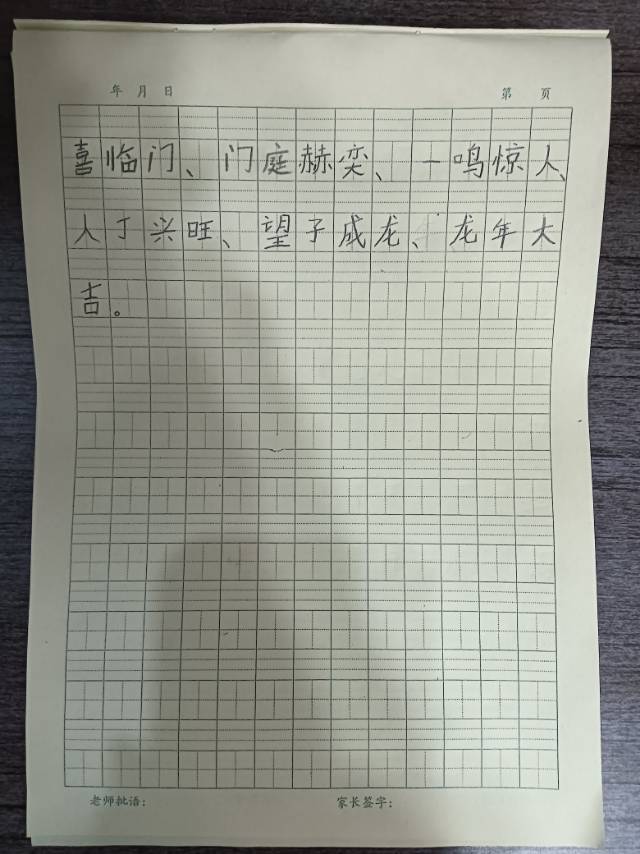 年 月 日 第 页
喜临门、门庭赫奕、一鸣惊人、
人丁兴旺、望子成龙、龙年大
吉。
老师批语： 家长签字：